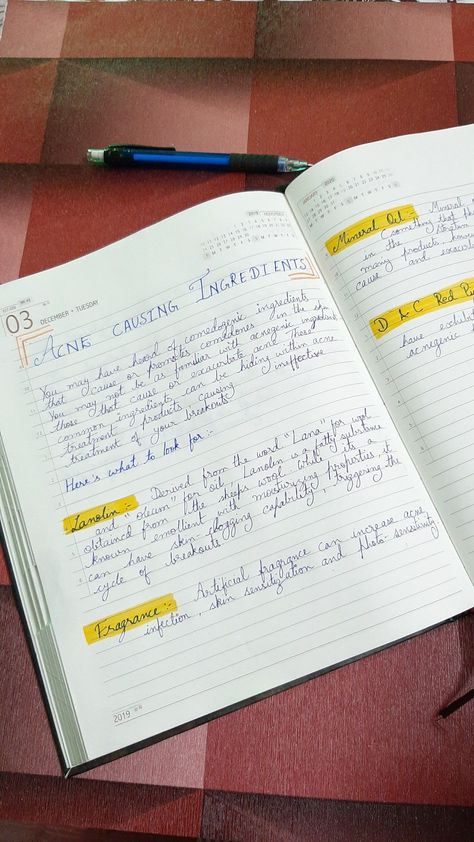 2019
03 DECEMBER • TUESDAY
ACNE CAUSING INGREDIENTS
You may have heard of comedogenic ingredients
that cause or promotes comedones in the skin
You may not be as familiar with acnegenic ingredient
those that cause or exacerbate acne. These
common ingredients can be hiding within acne
treatment of products causing ineffective
treatment of your breakouts.
Here's what to look for :-
Lanolin :- Derived from the word "Lana" for wool
and "oleum" for oil, Lanolin is a fatty substance
obtained from the sheeps wool. While its a
known emollient with moisturizing properties, it
can have skin-clogging capability, triggering the
cycle of breakouts.
Fragrance :- Artificial fragrance can increase acne
infection, skin sensitization and photo-sensitivity.
2019
JANUARY 2020
Mineral Oil :- Mineral
(something that
in the
many products, how
cause and exacer
D & C Red
have exhibit
acnegenic